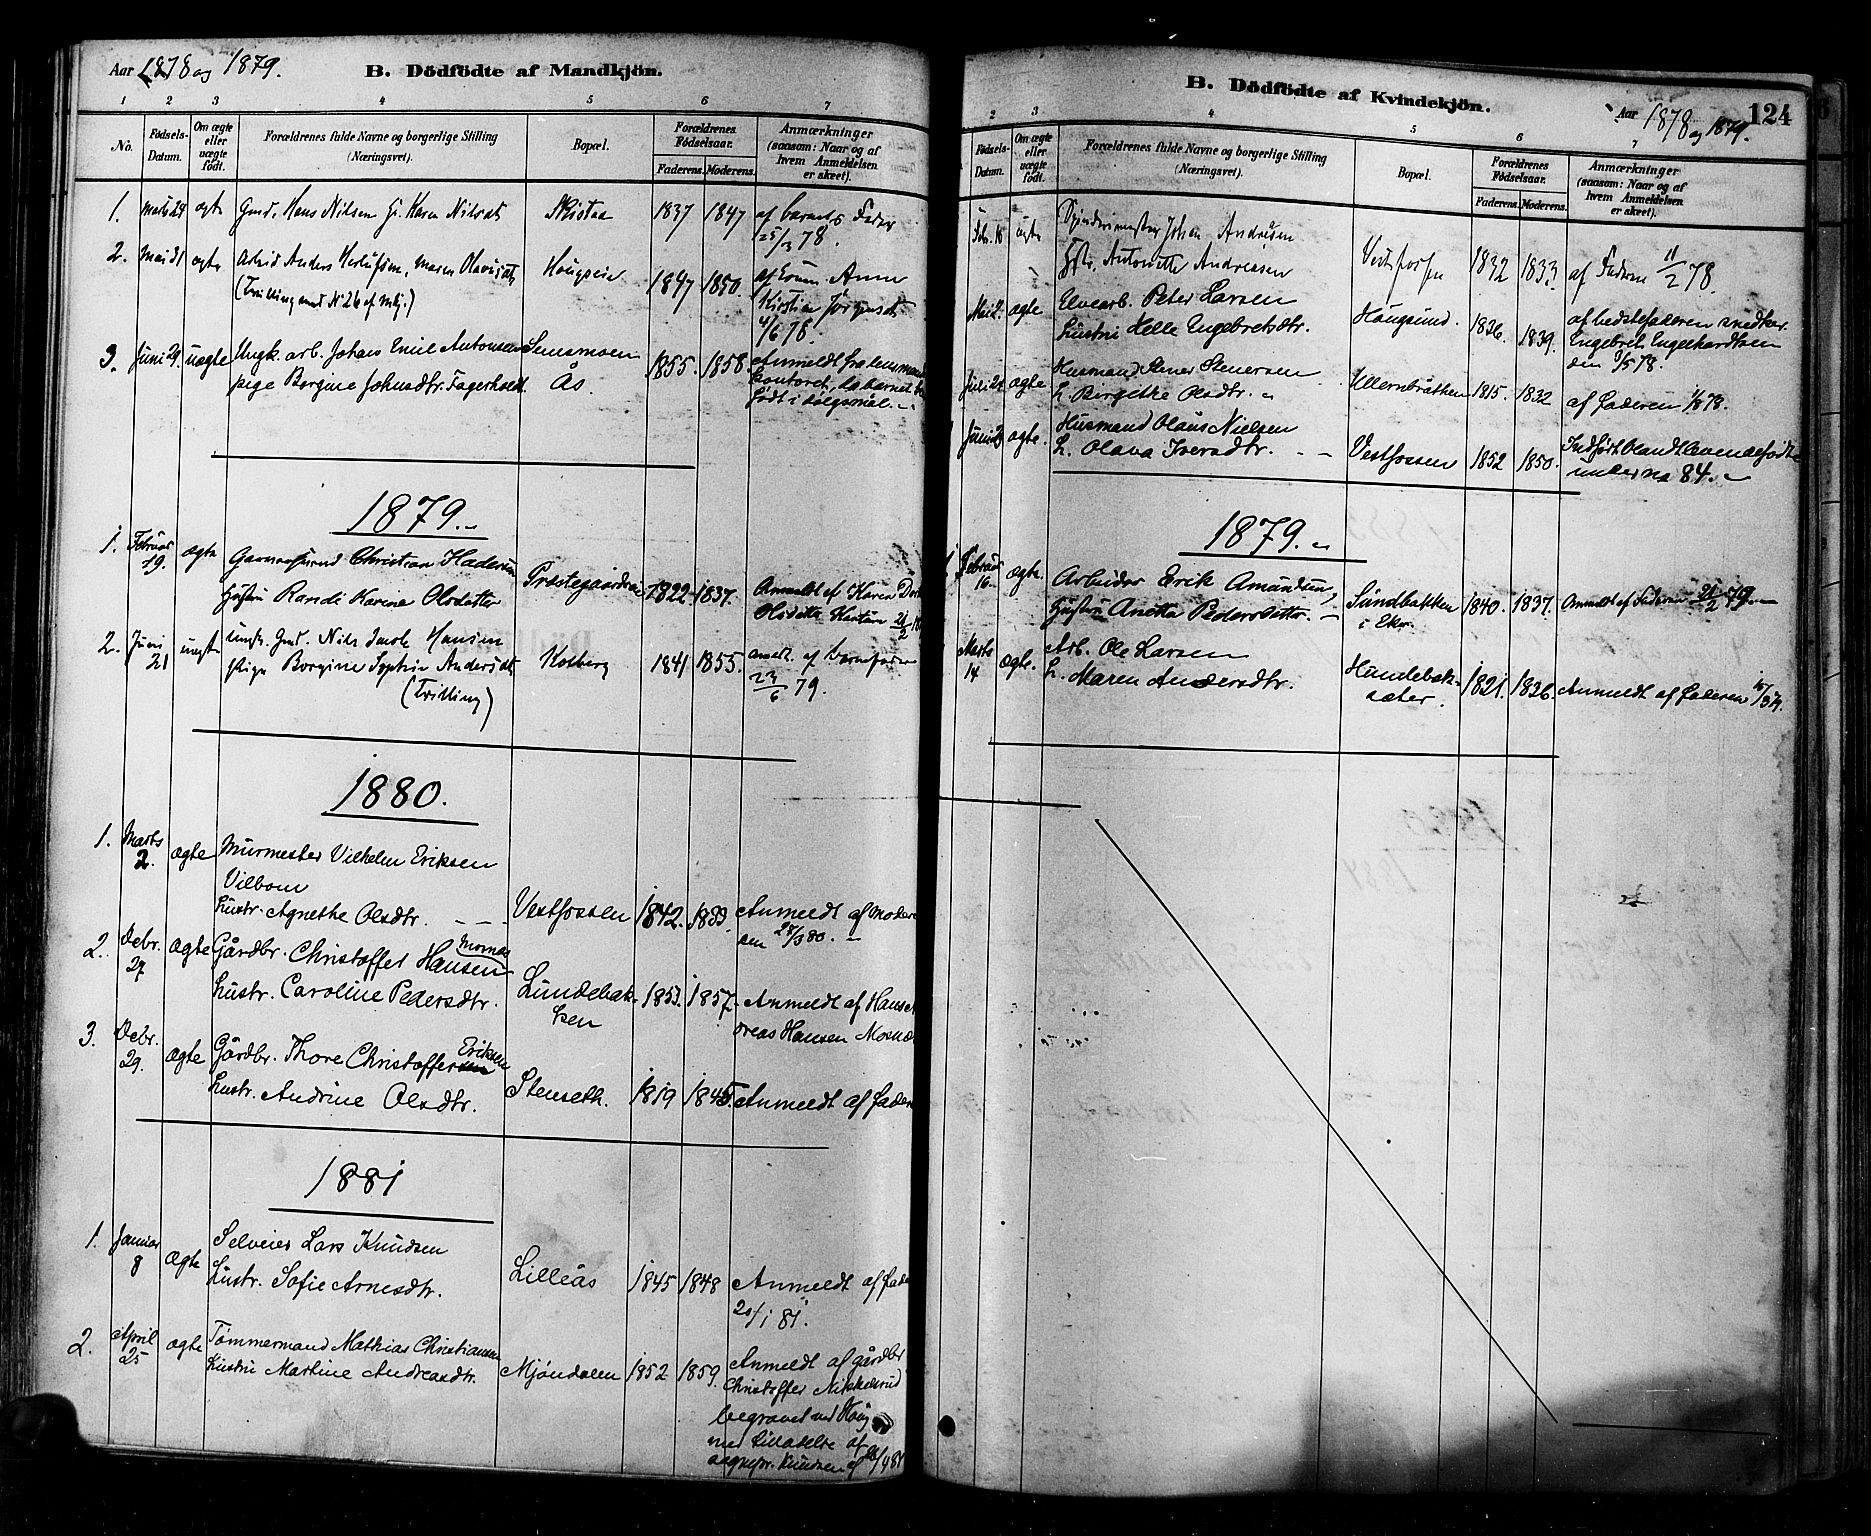 Aar 1878 og 1879.
B. Dödfödte af Mandkjön.
1 2 3 4 5 6 7
No.
Födsels-Datum.
Om ægte eller uægte födt.
Forældrenes fulde Navne og borgerlige Stilling (Næringsvei).
Bopæl.
Forældrenes Födselsaar.
Faderens. Moderens.
Anmærkninger (saasom: Naar og af hvem Anmeldelsen er skeet).
1. Marts 24 ægte Gmd. Hans Nilsen H. Karen Nilsdt. 1837 1847 af barnets Fader
25/3 78.
2. Mai 31 ægte Anders Herlufsen, Maren Olavesdt. Hougseie 1847 1850.
(Trilling med N 26 af mkj.)
Kirstine Jørgensdt.
4/6 78.
3. Juni 29. uægte Ungk. arb. Johans Emil Antonsen 1855. 1858. Anmeldt fra lensmand
pige Borgine Johnsdtr. Fagerholdt Ås. kontoret, da barnet
født i dølgsmål. -
1879.-
1. Februar 19. ægte Christian
Hustru Randi Karine Olsdatter Præstegaarden 1822 1837. Anmeldt af Karen
Olsdatter 21/2
2. Juni 21 uægte Nils Hansen
Pige Borgine Sophie Andersdt. Kolberg 1841 1855. anmeldt. af barnefader
(Trilling) 23/6 79.
1880.
1. Marts 2. ægte Murmester Vilhelm Eriksen
Vilbom
Hustr. Agnethe Olsdtr. - - Vestfossen 1842. Anmeldt af Mode
ren 27/3 80. -
2. Debr. 27 ægte Gårdbr. Christoffer Hansen
Hustr. Caroline Pedersdtr. Lundebak-
ken 1853. 1857. Anmeldt af Hans
Hansen
3. Debr. 29. ægte Gårdbr. Thore Christoffersen Eriksen
Hustr. Andrine Olsdtr. Stenseth. 1819 1845 Anmeldt af fade
1881
1. Januar 8 ægte Selveier Lars Knudsen
Hustr. Sofie Arnesdtr. Lilleås 1845 1848 Anmeldt af fade
20/1 81.
2. April 25 ægte Tømmermand Mathias Christiansen
Hustru Martine Andreasdtr. Mjøndalen 1852 1859. Anmeldt af gårdbr
Christoffer
begravet ved Houg
med tilladelse af
sognepr. Knudsen
B. Dödfödte af Kvindekjön.
Aar 1878 og 1879.
124
2 3 4 5 6 7
Födsels-Datum.
Om ægte eller uægte födt.
Forældrenes fulde Navne og borgerlige Stilling (Næringsvei).
Bopæl.
Forældrenes Födselsaar.
Faderens. Moderens.
Anmærkninger (saasom: Naar og af hvem Anmeldelsen er skeet).
Feb. ægte Spinderimester Johan Andresen
Hstr. Antonette Andreasen Vestfossen 1832 1833. af Faderen 11/2 78.
Mai 2. ægte Elvearb. Peter Larsen
Hustru Helle Engebretsdtr. Hougsund. 1836. 1839. af bedstefaderen snedker
Engebret Engelhardtsen
den 3/5 78.
Juli ægte Husmand Stener Stenersen
H. Birgithe Olsdtr. " Ullernbråtken 1815. 1832 af faderen 1/8 78.
Juni ægte. Husmand Olaus Nielsen
H. Olava Iversdtr. - - Vestfossen 1852 1850. Indført blandt levendefødte
under no 84. -
1879. -
1 Februar 16. ægte. Arbeider Erik Amundsen,
Hustru Anetta Pedersdatter. - Sundbakken
i Eker. 1840. 1837. Anmeldt af Faderen 21/2 79. -
Marts 14 ægte. Arb. Ole Larsen
H. Maren Andersdtr. Hundebak-
sæter. 1821. 1826. Anmeldt af faderen